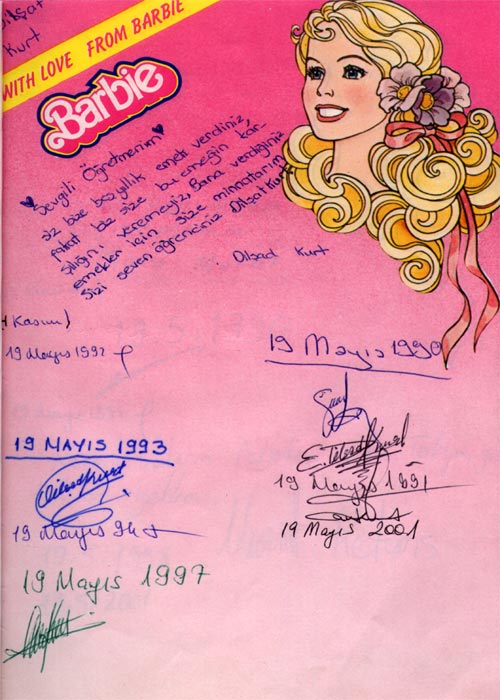 Dilşat
Kurt
WITH LOVE FROM BARBIE
Barbie
Sevgili Öğretmenim
siz bize beş yıllık emek verdiniz,
fakat biz size bu emeğin kar-
şılığını veremeyiz. Bana verdiğiniz
emekler için size minnatarım
Sizi seven öğrenciniz Dilşat Kurt
Dilşad Kurt
Kasım)
19 Mayıs 1992
19 Mayıs 1990
19 MAYIS 1993
19 Mayıs 1991
19 Mayıs 94
19 Mayıs 2001
19 Mayıs 1997